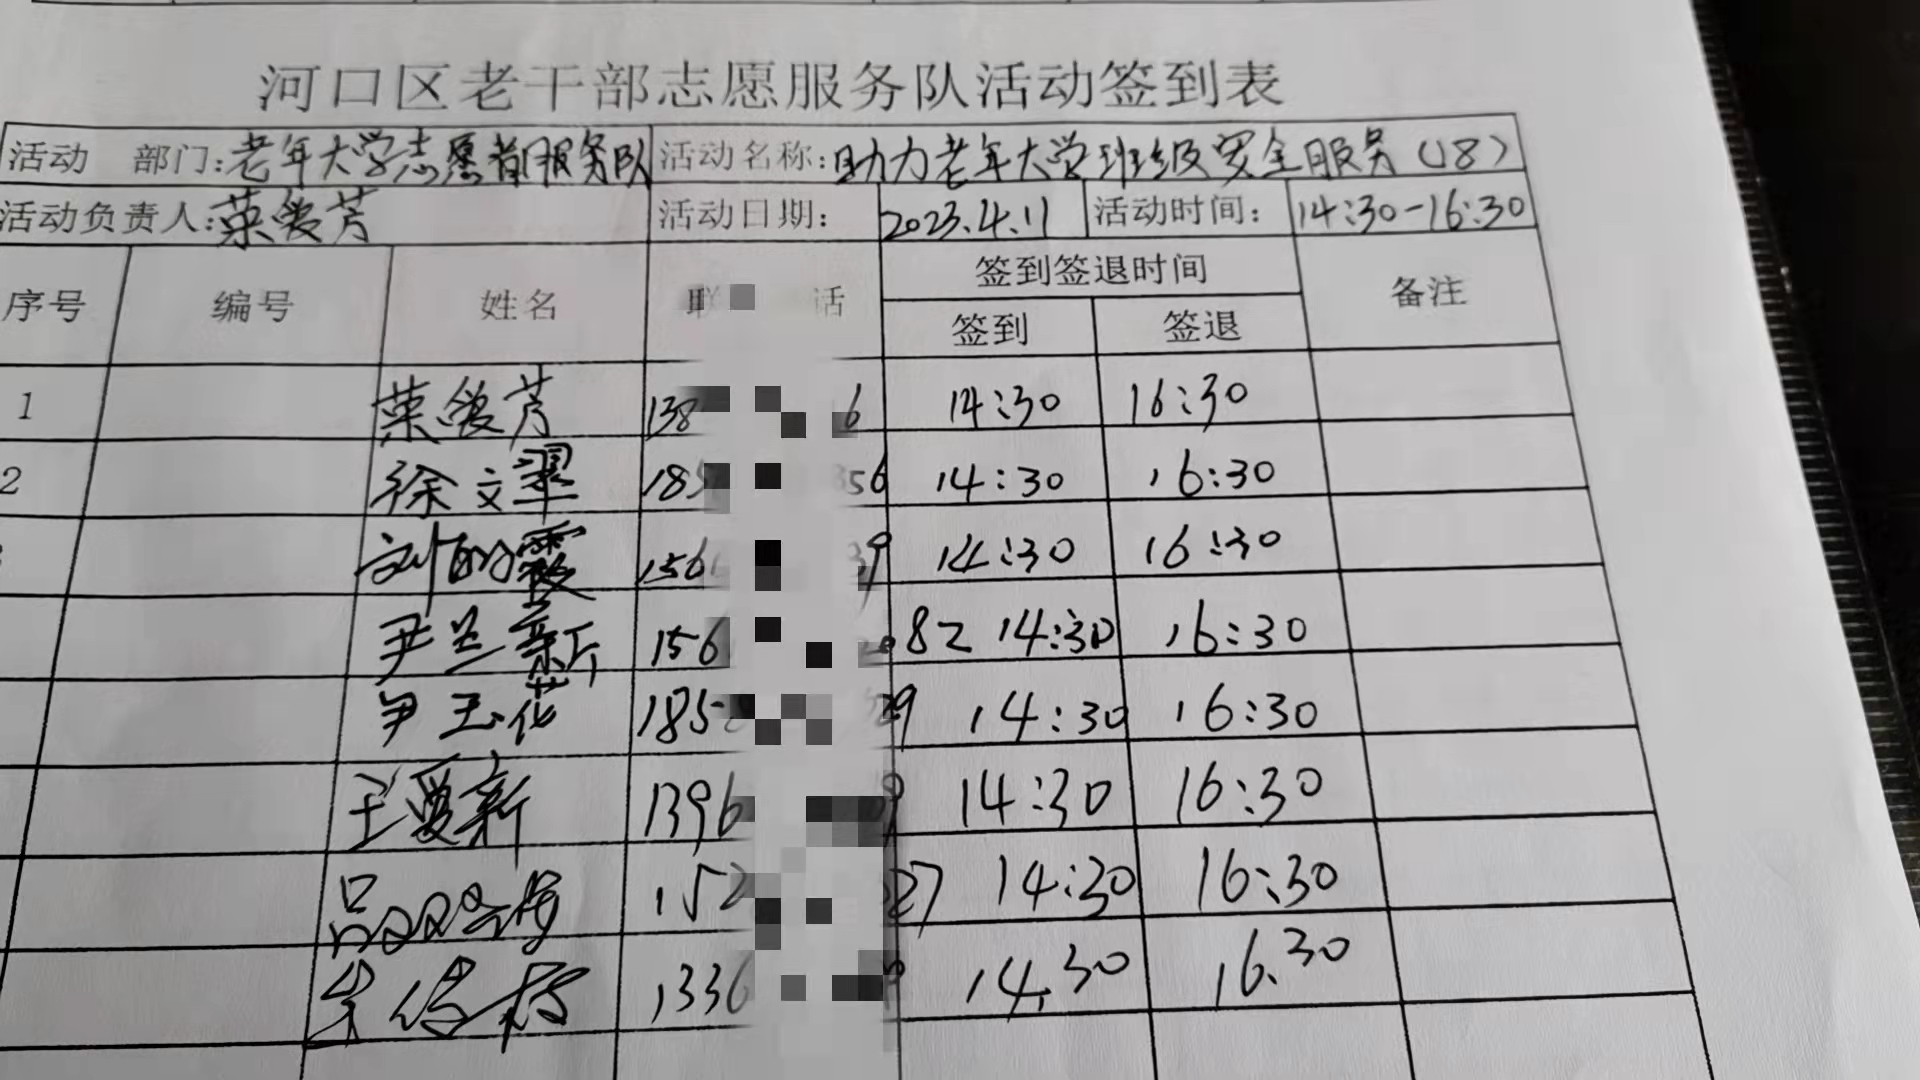 河口区老干部志愿服务队活动签到表
活动 部门:老年大学志愿者服务队 活动名称:助力老年大学班级安全服务(18)
活动负责人:荣爱芳 活动日期: 2023.4.11 活动时间: 14:30-16:30
序号 编号 姓名 联 话 签到签退时间 备注
签到 签退
1 荣爱芳 138 6 14:30 16:30
2 徐文翠 185 356 14:30 16:30
刘丽霞 156 39 14:30 16:30
尹兰新 156 82 14:30 16:30
尹玉花 185 29 14:30 16:30
王爱新 1396 9 14:30 16:30
吕 152 27 14:30 16:30
1336 14.30 16.30